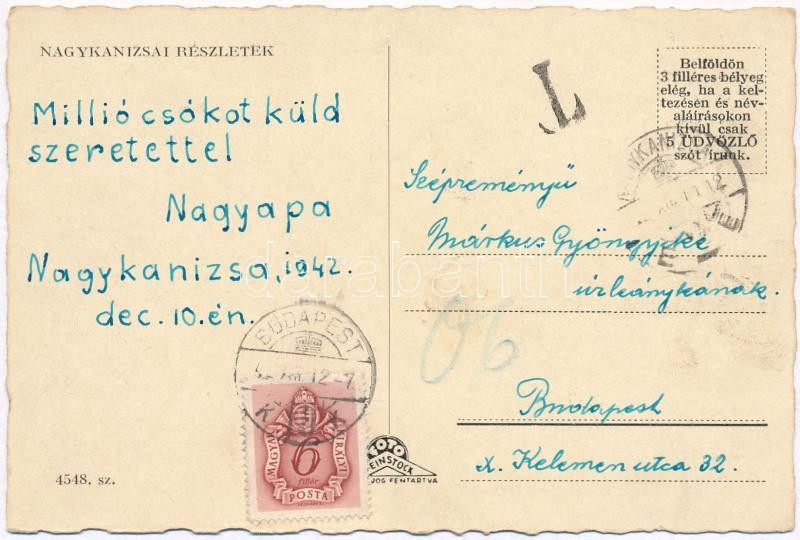 NAGYKANIZSAI RÉSZLETEK
Millió csókot küld
szeretettel
Nagyapa
Nagykanizsa, 1942.
dec. 10.én.
4548. sz.
T
Belföldön
3 filléres bélyeg
elég, ha a kel-
tezésen és név-
aláírásokon
kívül csak
5 ÜDVÖZLŐ
szót írunk.
Szépreményű
Márkus Gyöngyike
úrleánykának.
06
Budapest
X. Kelemen utca 32.
BUDAPEST
MAGYAR KIRÁLYI
6
fillér
POSTA
FOTO
WEINSTOCK
JOG FENTARTVA
darabanth